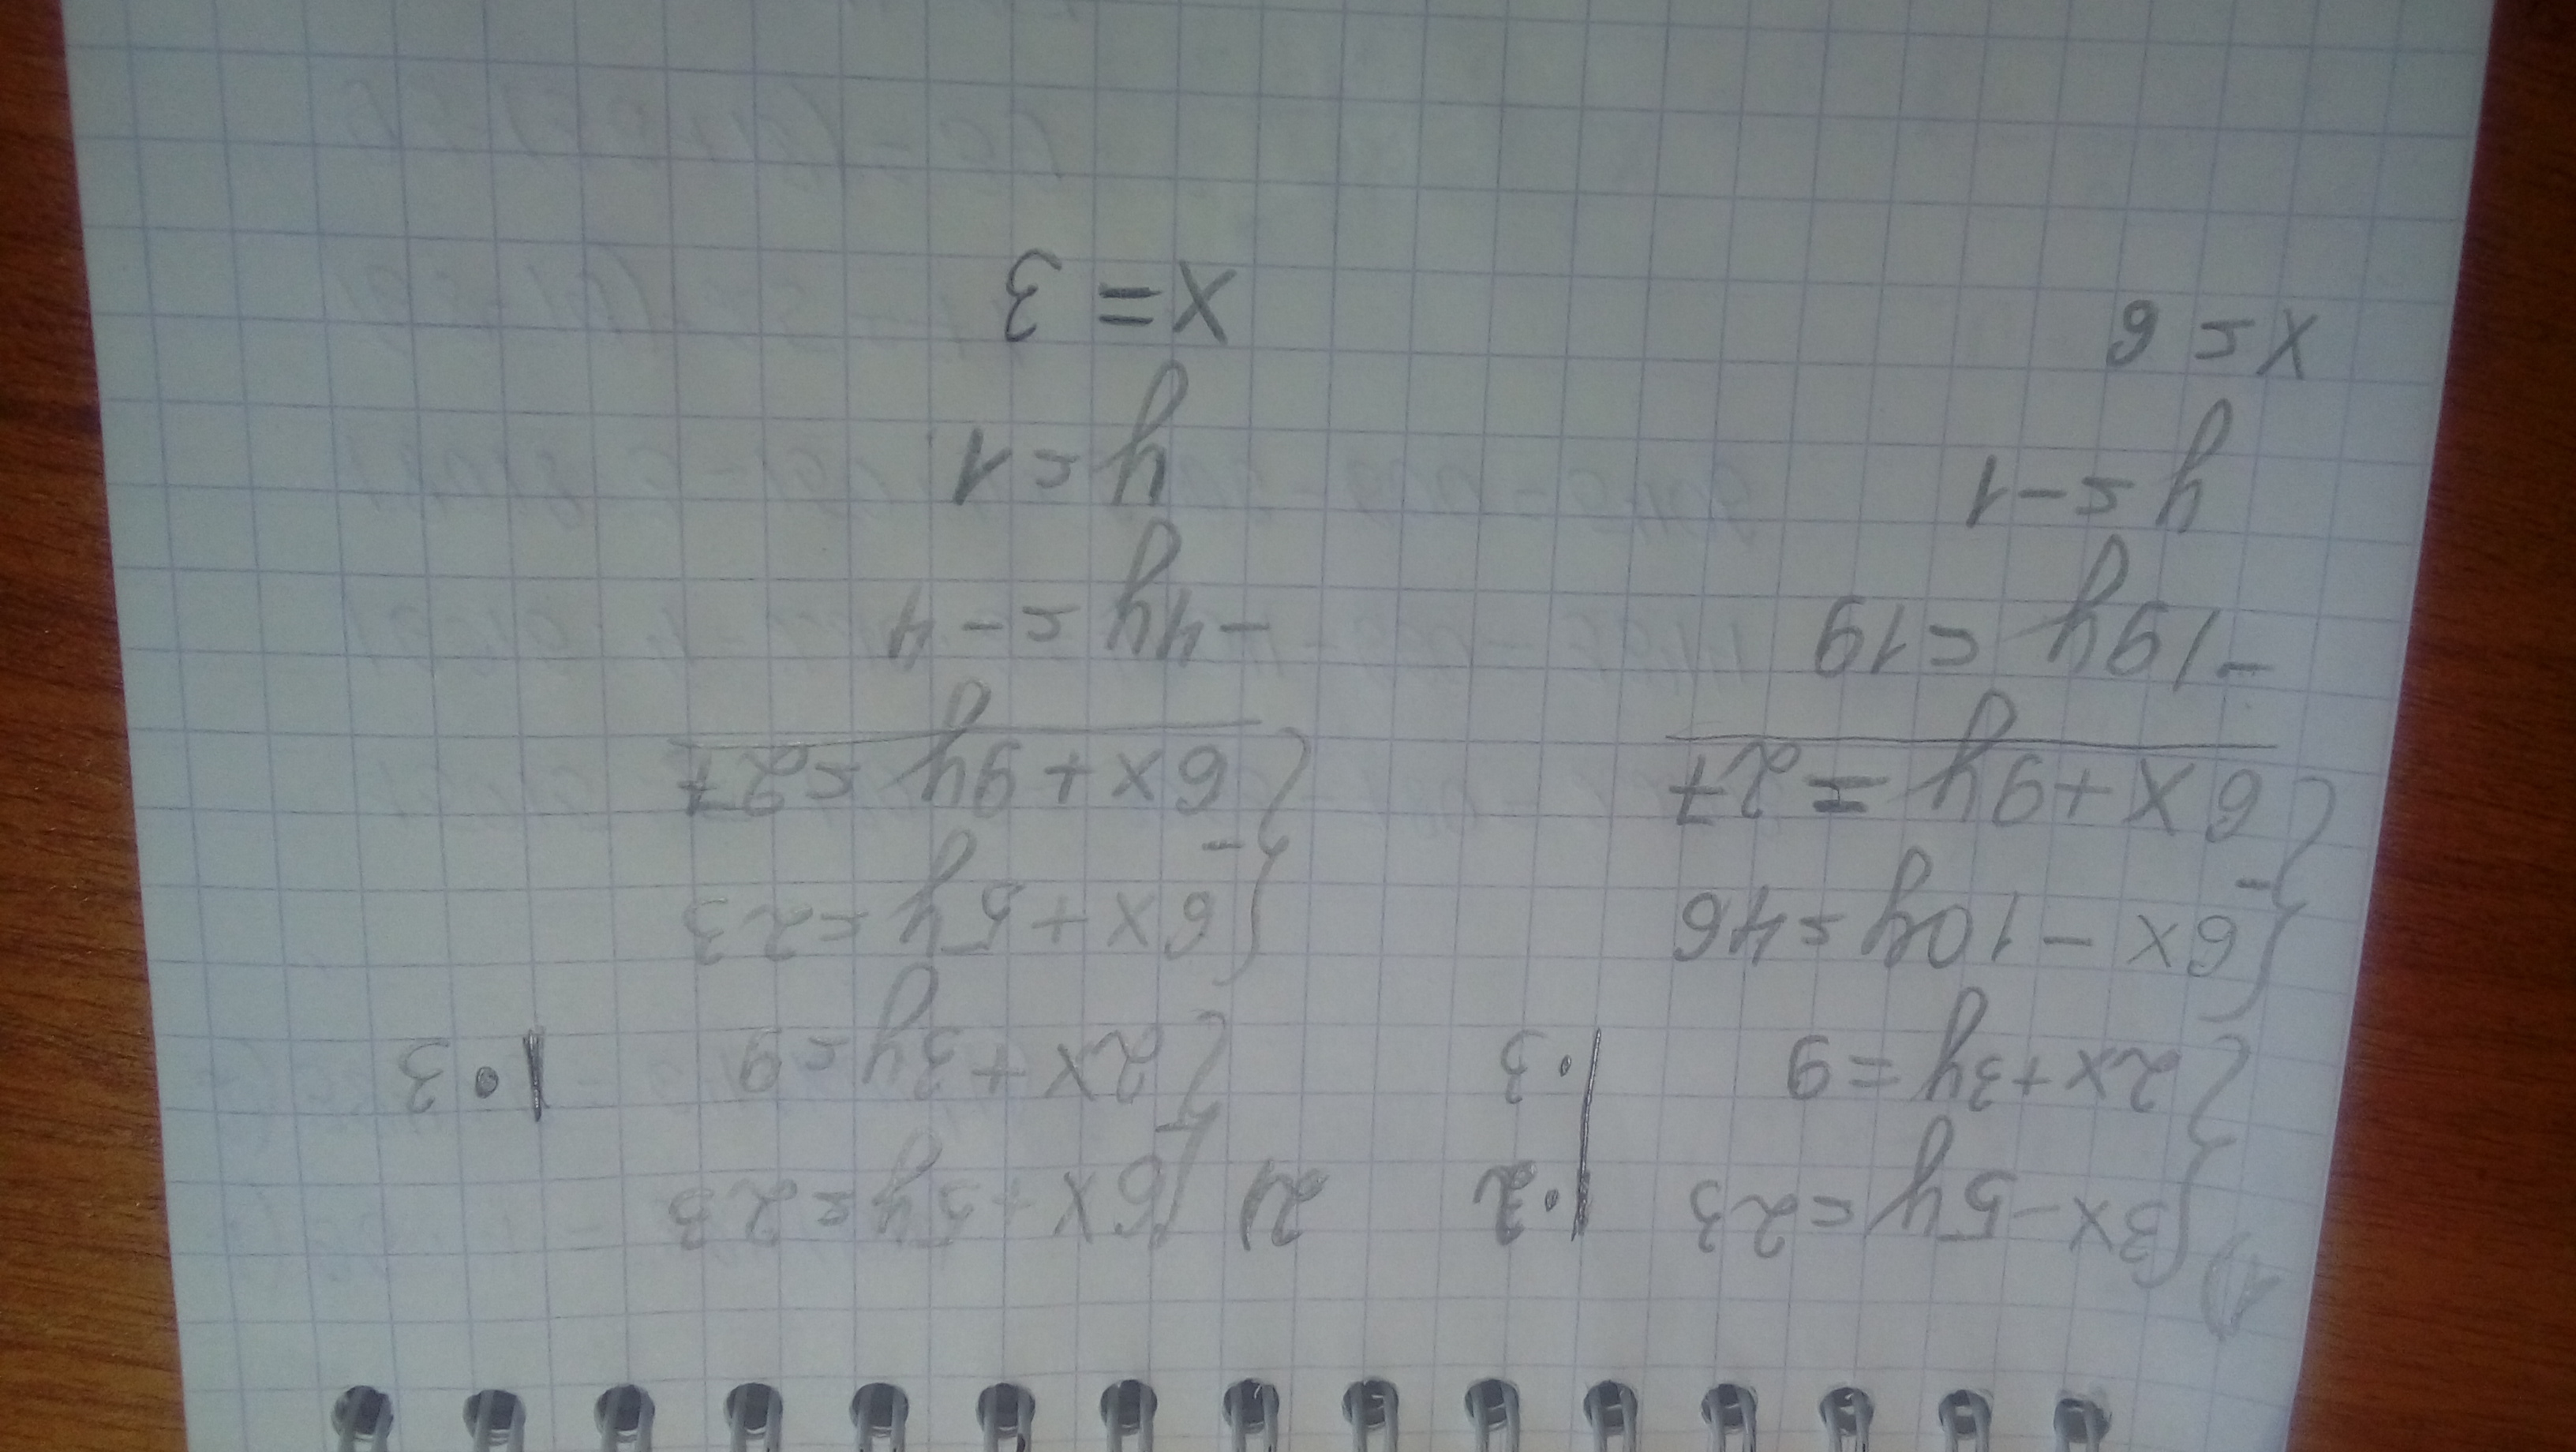 1) {3x-5y=23 |·2
2x+3y=9 |·3
{6x-10y=46
-
6x+9y=27
-19y=19
y=-1
x=6
2) {6x+5y=23
2x+3y=9 |·3
{6x+5y=23
-
6x+9y=27
-4y=-4
y=1
x=3